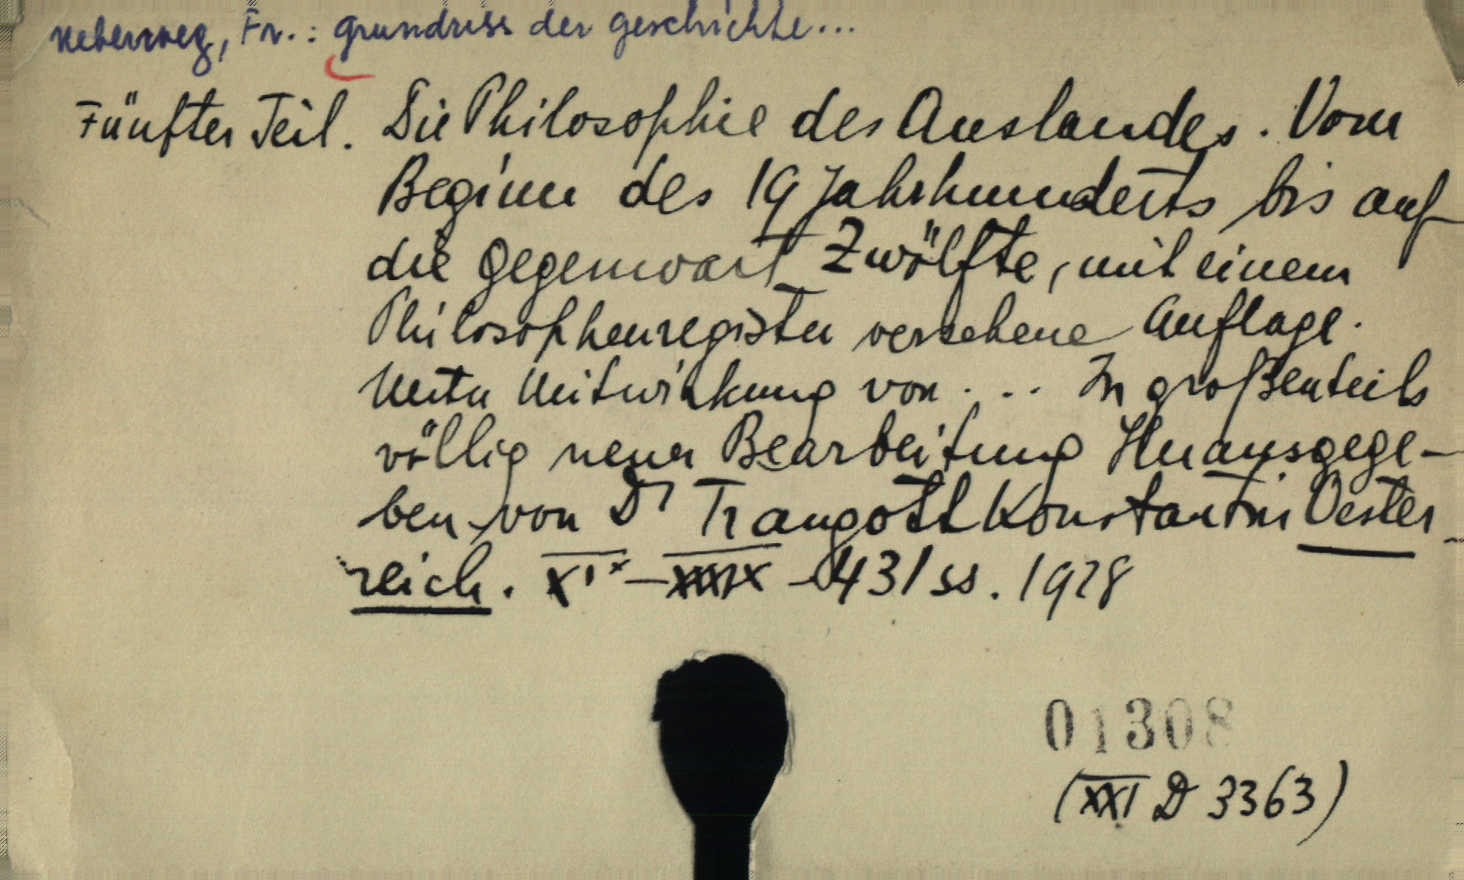 Ueberweg, Fr.: Grundriss der geschichte...
Fünfter Teil. Die Philosophie des Auslandes. Vom
Beginn des 19 Jahrhunderts bis auf
die Gegenwart Zwölfte, mit einem
Philosophenregister versehene Auflage.
Unter Mitwirkung von ... In großenteils
völlig neuer Bearbeitung Herausgege-
ben von Dr Traugott Konstantin Oester-
reich. - 431 ss. 1928
01308
(XXI D 3363)